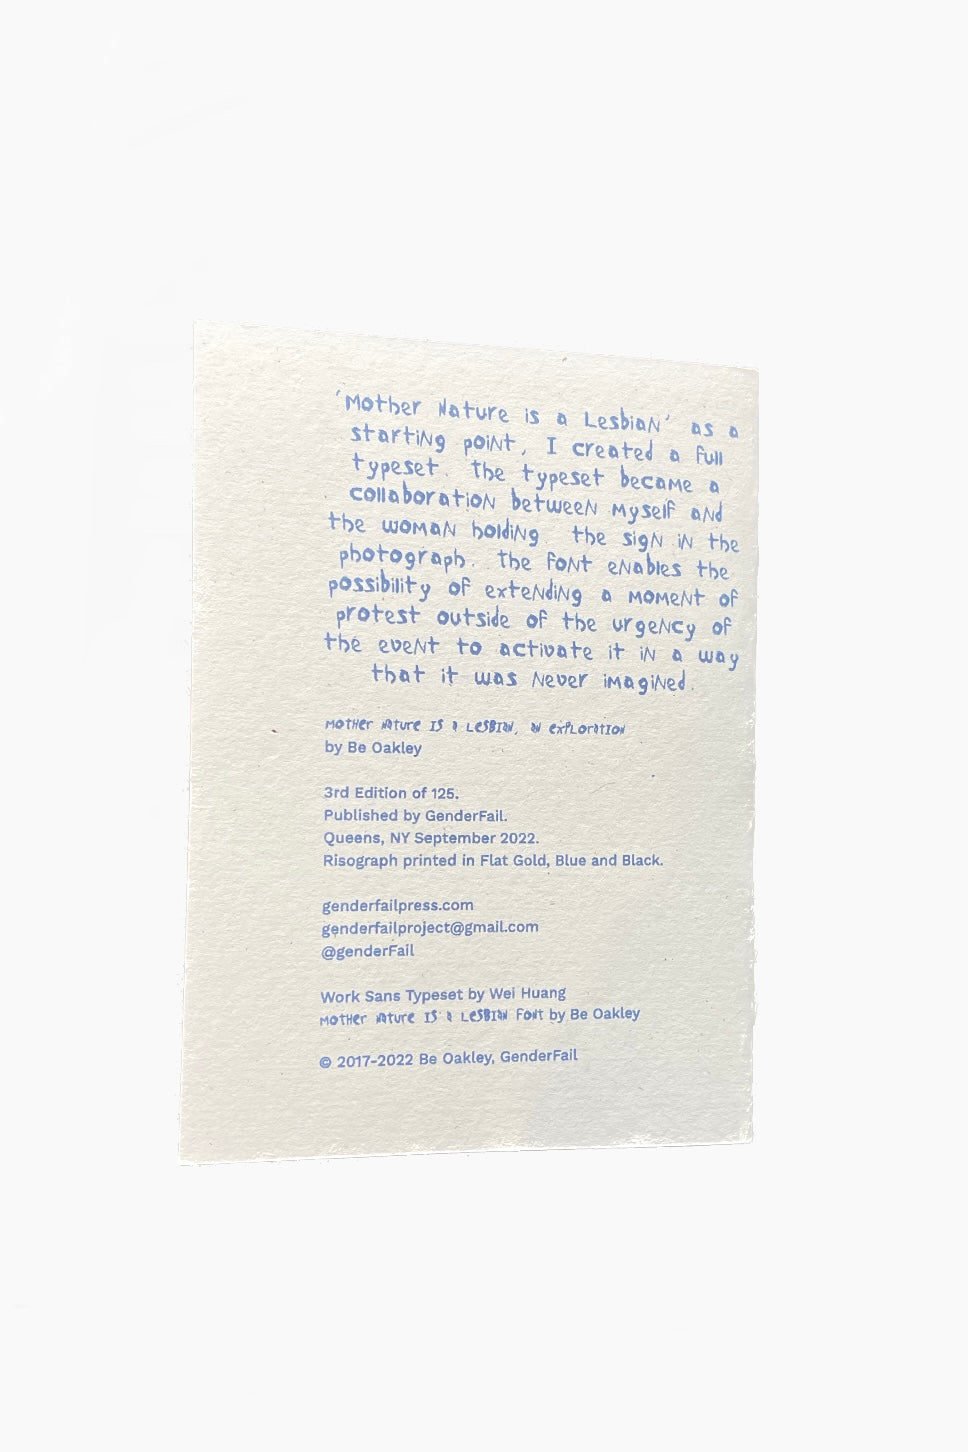 'Mother Nature is a Lesbian' as a
starting point, I created a full
typeset. The typeset became a
collaboration between myself and
the woman holding the sign in the
photograph. The font enables the
possibility of extending a moment of
protest outside of the urgency of
the event to activate it in a way
that it was never imagined.
Mother Nature is a Lesbian, an exploration
by Be Oakley
3rd Edition of 125.
Published by GenderFail.
Queens, NY September 2022.
Risograph printed in Flat Gold, Blue and Black.
genderfailpress.com
genderfailproject@gmail.com
@genderFail
Work Sans Typeset by Wei Huang
Mother Nature is a Lesbian Font by Be Oakley
© 2017-2022 Be Oakley, GenderFail